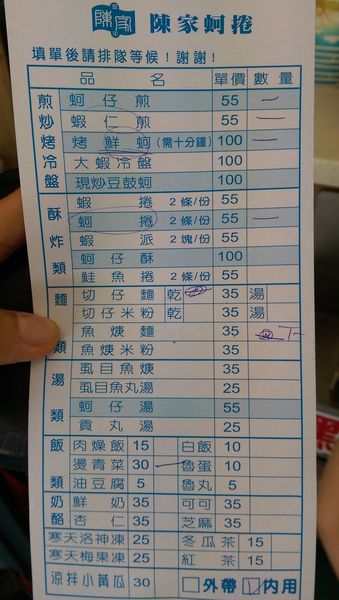 安
陳家 陳家蚵捲
平
填單後請排隊等候！謝謝！
品 名 單價 數量
煎炒烤冷盤
蚵仔煎 55 一
蝦仁煎 55 一
烤鮮蚵(需十分鐘) 100 一
大蝦冷盤 100
現炒豆鼓蚵 100
酥炸類
蝦捲 2條/份 55
蚵捲 2條/份 55 一
蝦派 2塊/份 55
蚵仔酥 100
鮭魚捲 2條/份 55
麵類
切仔麵 乾 35 湯
切仔米粉 乾 35 湯
魚焿麵 35
魚焿米粉 35
湯類
虱目魚焿 35
虱目魚丸湯 25
蚵仔湯 55
貢丸湯 25
飯類
肉燥飯 15 白飯 10
燙青菜 30 一 魯蛋 10
油豆腐 5 魯丸 5
奶酪
鮮奶 35 可可 35
杏仁 35 芝麻 35
寒天洛神凍 25 冬瓜茶 15
寒天梅果凍 25 紅茶 15
涼拌小黃瓜 30 外帶 內用